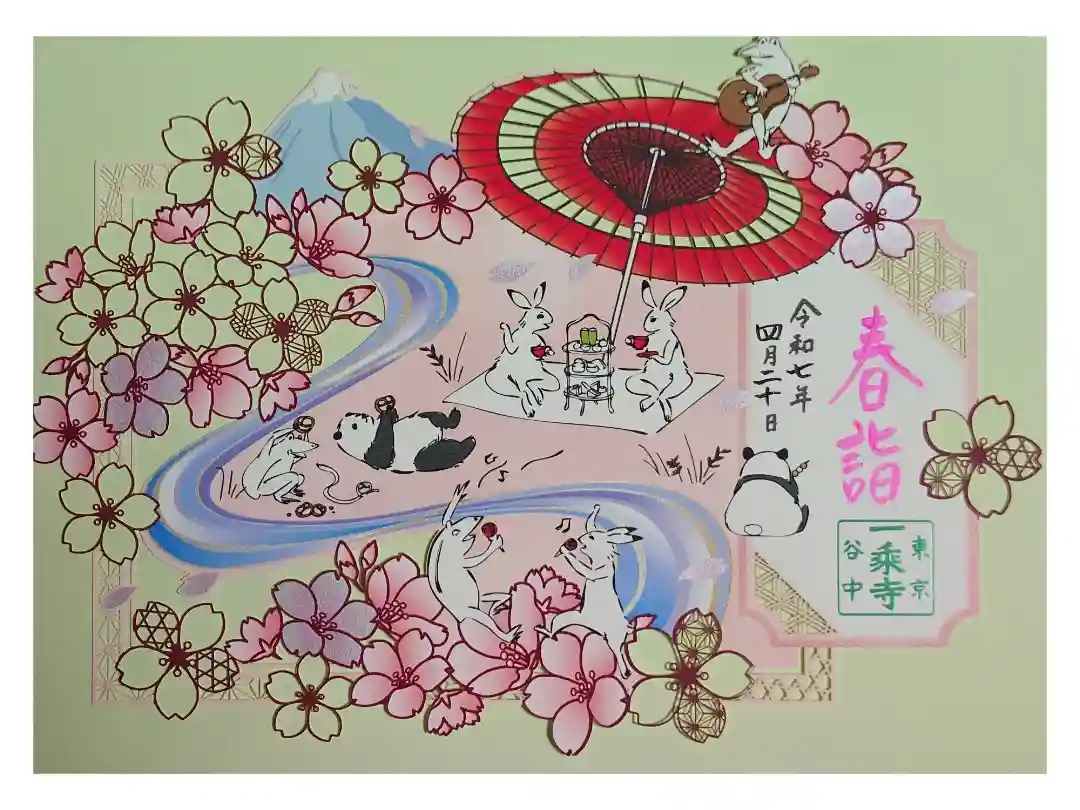 春詣
令和七年
四月二十日
東京
一乗寺
谷中